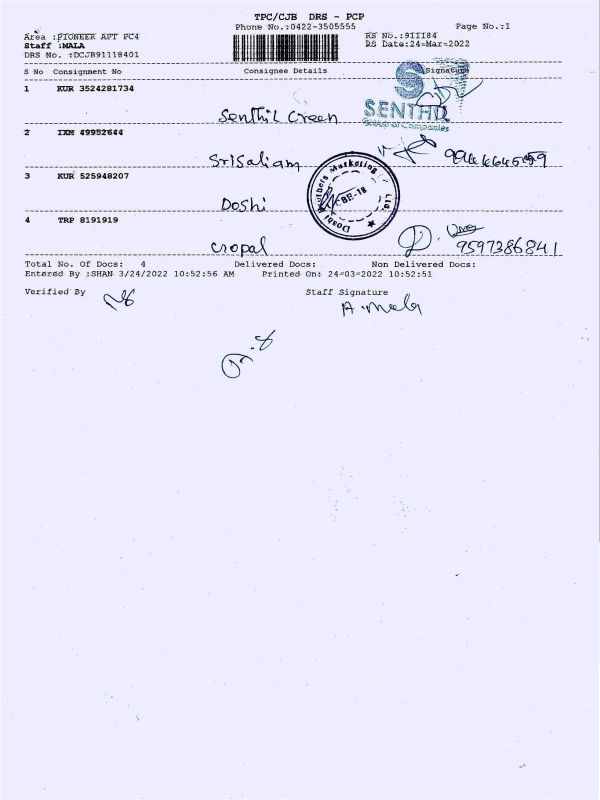 TPC/CJB DRS - PCP
Phone No.:0422-3505555 Page No.:1
Area :PIONEER APT PC4 RS No.:911184
Staff :MALA RS Date:24-Mar-2022
DRS No. :DCJB91118401
S No Consignment No Consignee Details Signature
1 KUR 3524281734
Senthil Green
SENTHIL
Group of Companies
2 IXM 49952644
Srisaliam
3 KUR 525948207
Doshi
Doshi Brothers Marketing Ltd
CBE-18
4 TRP 8191919
Gopal 9597386841
Total No. Of Docs: 4 Delivered Docs: Non Delivered Docs:
Entered By :SHAN 3/24/2022 10:52:56 AM Printed On: 24-03-2022 10:52:51
Verified By Staff Signature
A. Mala